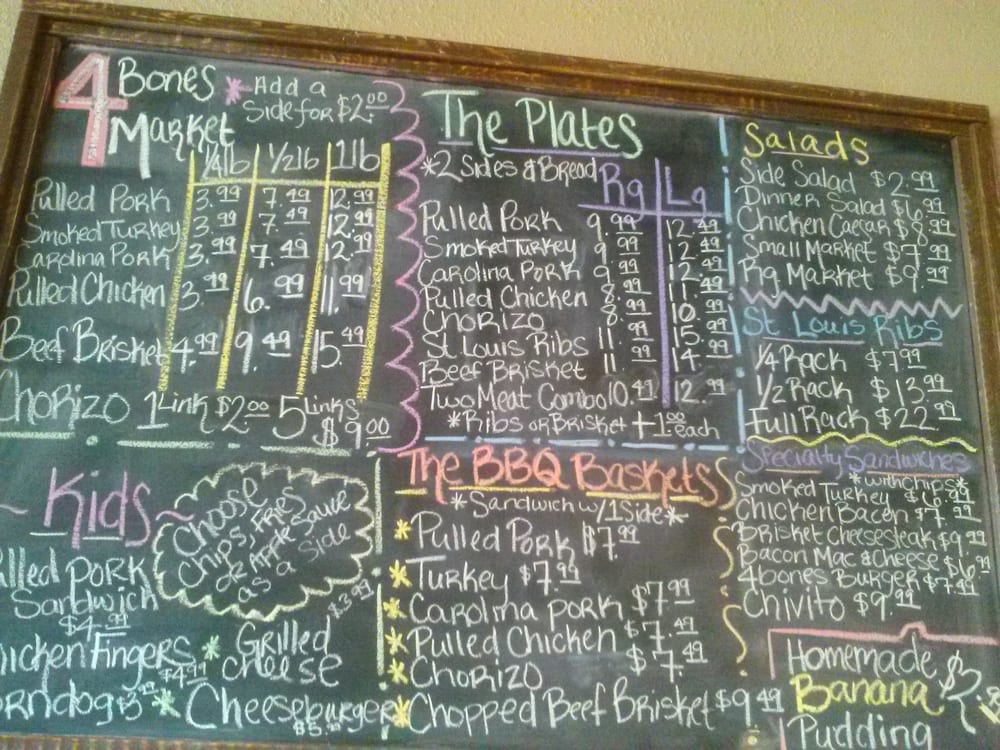 4 Bones Market
*Add a
Side for $2.00
1/4 lb 1/2 lb 1 lb
Pulled Pork 3.99 7.49 12.99
Smoked Turkey 3.99 7.49 12.99
Carolina Pork 3.99 7.49 12.99
Pulled Chicken 3.99 6.99 11.99
Beef Brisket 4.99 9.49 15.49
Chorizo 1 Link $2.00 5 Links
$9.00
The Plates
*2 Sides & Bread Rg Lg
Pulled Pork 9.99 12.49
Smoked Turkey 9.99 12.49
Carolina Pork 9.99 12.49
Pulled Chicken 8.99 11.49
Chorizo 8.99 10.99
St Louis Ribs 11.99 15.99
Beef Brisket 11.99 14.99
Two Meat Combo 10.49 12.99
*Ribs or Brisket +1.00 each
Salads
Side Salad $2.99
Dinner Salad $6.99
Chicken Caesar $8.99
Small Market $7.99
Rg Market $9.99
St Louis Ribs
1/4 Rack $7.99
1/2 Rack $13.99
Full Rack $22.99
Specialty Sandwiches
*with chips*
Smoked Turkey $6.99
Chicken Bacon $7.99
Brisket Cheesesteak $9.99
Bacon Mac & Cheese $6.99
4bones Burger $7.49
Chivito $9.99
Homemade
Banana
Pudding
~ Kids ~
Choose
Chips, Fries
or Apple Sauce
as a
Side
lled Pork
Sandwich
$4.99
hicken Fingers
$4.99
orndog $3.99
* Grilled
Cheese
$3.99
* Cheeseburger
$5.99
The BBQ Baskets
*Sandwich w/ 1 Side*
* Pulled Pork $7.99
* Turkey $7.99
* Carolina pork $7.99
* Pulled Chicken $7.49
* Chorizo $7.49
* Chopped Beef Brisket $9.49